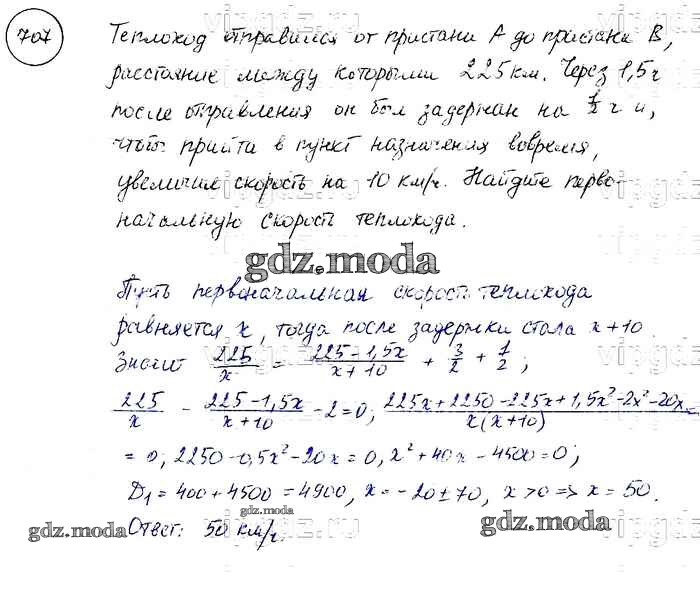 707
Теплоход отправился от пристани А до пристани В,
расстояние между которыми 225 км. Через 1,5 ч
после отправления он был задержан на 1/2 ч и,
чтобы прийти в пункт назначения вовремя,
увеличил скорость на 10 км/ч. Найдите перво-
начальную скорость теплохода.
gdz.moda
Пусть первоначальная скорость теплохода
равняется x, тогда после задержки стала x+10.
Значит 225/x = (225-1,5x)/(x+10) + 3/2 + 1/2;
225/x - (225-1,5x)/(x+10) - 2 = 0; (225x+2250-225x+1,5x²-2x²-20x)/(x(x+10)) =
= 0; 2250-0,5x²-20x=0, x²+40x-4500=0;
D₁=400+4500=4900, x=-20±70, x>0 => x=50.
Ответ: 50 км/ч.
gdz.moda
gdz.moda